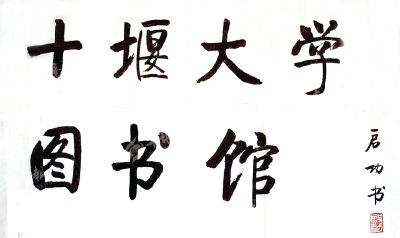 十堰大学
图书馆
启功书